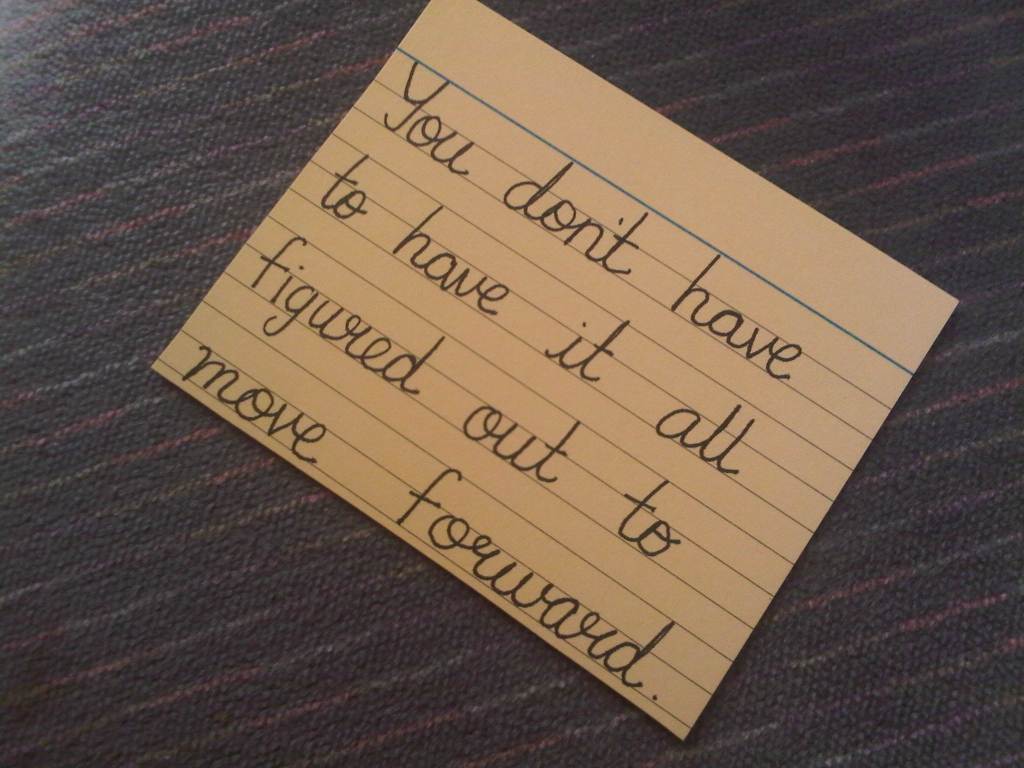 You don't have
to have it all
figured out to
move forward.